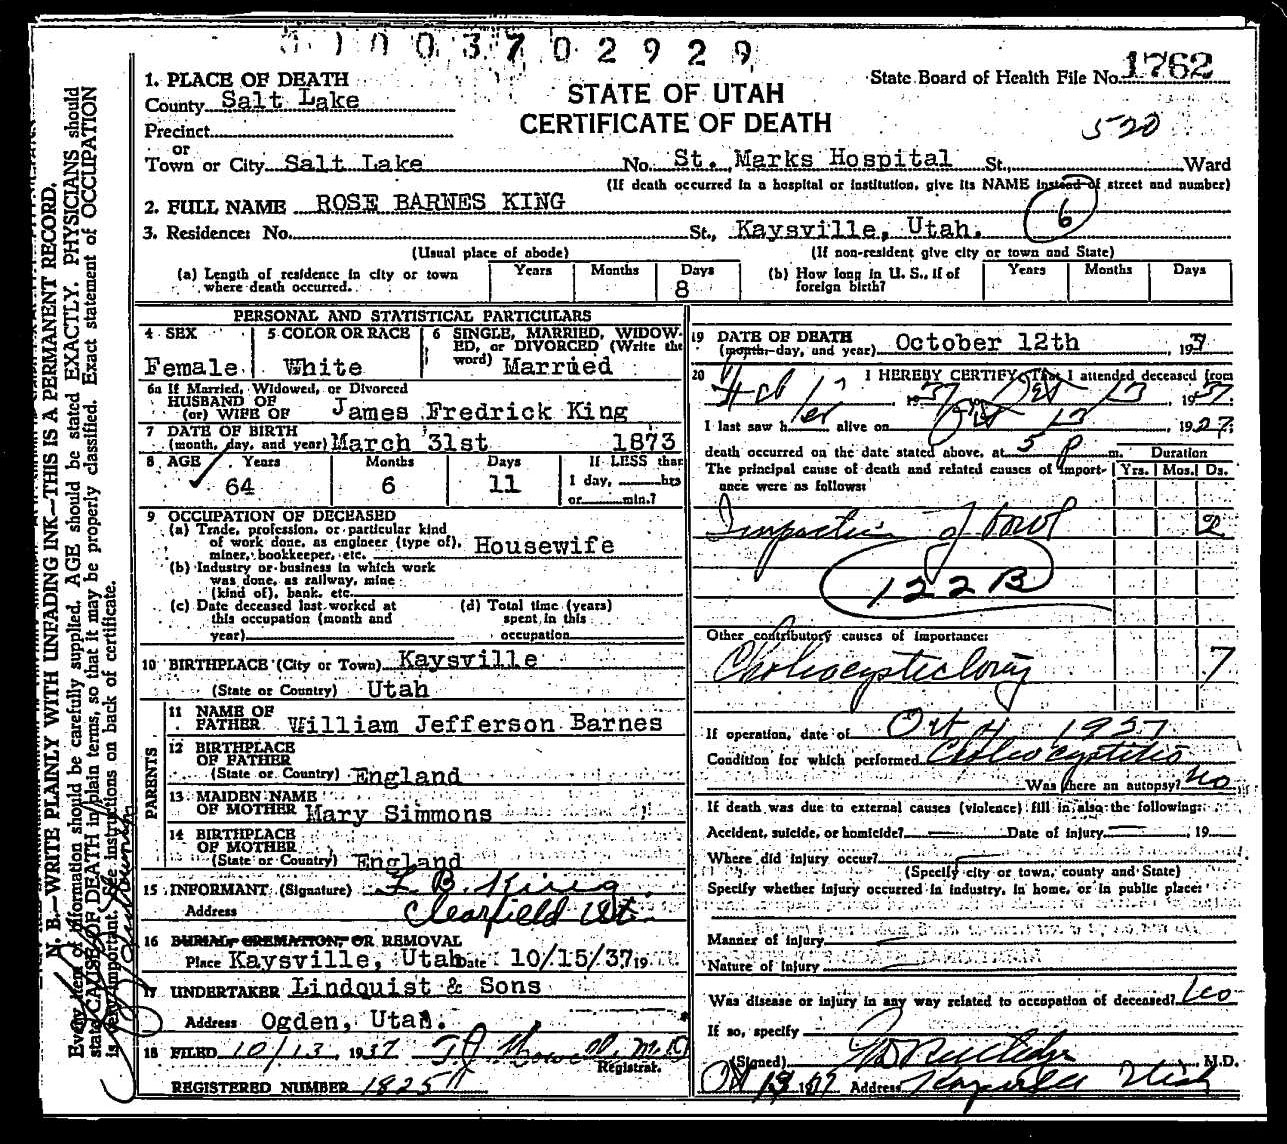 0 1 0 0 3 7 0 2 9 2 9
State Board of Health File No. 1762
STATE OF UTAH
CERTIFICATE OF DEATH
520
1. PLACE OF DEATH
County Salt Lake
Precinct
or
Town or City Salt Lake No. St. Marks Hospital St., Ward
(If death occurred in a hospital or institution, give its NAME instead of street and number)
2. FULL NAME ROSE BARNES KING
6
3. Residence: No. St., Kaysville, Utah.
(Usual place of abode) (If non-resident give city or town and State)
(a) Length of residence in city or town where death occurred. Years Months Days 8
(b) How long in U. S., if of foreign birth? Years Months Days
PERSONAL AND STATISTICAL PARTICULARS
4 SEX Female
5 COLOR OR RACE White
6 SINGLE, MARRIED, WIDOWED, or DIVORCED (Write the word) Married
6a If Married, Widowed, or Divorced
HUSBAND OF
(or) WIFE OF James Fredrick King
7 DATE OF BIRTH
(month, day, and year) March 31st 1873
8 AGE Years Months Days If LESS than
64 6 11 1 day, hrs
or min.?
9 OCCUPATION OF DECEASED
(a) Trade, profession, or particular kind
of work done, as engineer (type of),
miner, bookkeeper, etc. Housewife
(b) Industry or business in which work
was done, as railway, mine
(kind of), bank, etc.
(c) Date deceased last worked at
this occupation (month and
year)
(d) Total time (years)
spent in this
occupation
10 BIRTHPLACE (City or Town) Kaysville
(State or Country) Utah
PARENTS
11 NAME OF
FATHER William Jefferson Barnes
12 BIRTHPLACE
OF FATHER
(State or Country) England
13 MAIDEN NAME
OF MOTHER Mary Simmons
14 BIRTHPLACE
OF MOTHER
(State or Country) England
15 INFORMANT (Signature) F. B. King
Address Clearfield Ut.
16 BURIAL, CREMATION, OR REMOVAL
Place Kaysville, Utah Date 10/15/37 19
17 UNDERTAKER Lindquist & Sons
Address Ogden, Utah.
18 FILED 10/13, 1937 M.D.
Registrar.
REGISTERED NUMBER 1825
19 DATE OF DEATH
(month, day, and year) October 12th, 1937
20 I HEREBY CERTIFY, That I attended deceased from
Feb 17, 1937, 1937
I last saw her alive on 1937
death occurred on the date stated above, at 5 P m. Duration
The principal cause of death and related causes of importance were as follows: Yrs. Mos. Ds.
Impaction of bowel 2
122B
Other contributory causes of importance:
7
If operation, date of Oct 4 1937
Condition for which performed Cholecystitis
Was there an autopsy? No
If death was due to external causes (violence) fill in also the following:
Accident, suicide, or homicide? Date of injury , 19
Where did injury occur?
(Specify city or town, county and State)
Specify whether injury occurred in industry, in home, or in public place:
Manner of injury
Nature of injury
Was disease or injury in any way related to occupation of deceased? No
If so, specify
(Signed) M.D.
Oct 13 1937 Address Kaysville Utah
N. B.—WRITE PLAINLY WITH UNFADING INK—THIS IS A PERMANENT RECORD.
Every item of information should be carefully supplied. AGE should be stated EXACTLY. PHYSICIANS should
state CAUSE OF DEATH in plain terms, so that it may be properly classified. Exact statement of OCCUPATION
is very important. See instructions on back of certificate.